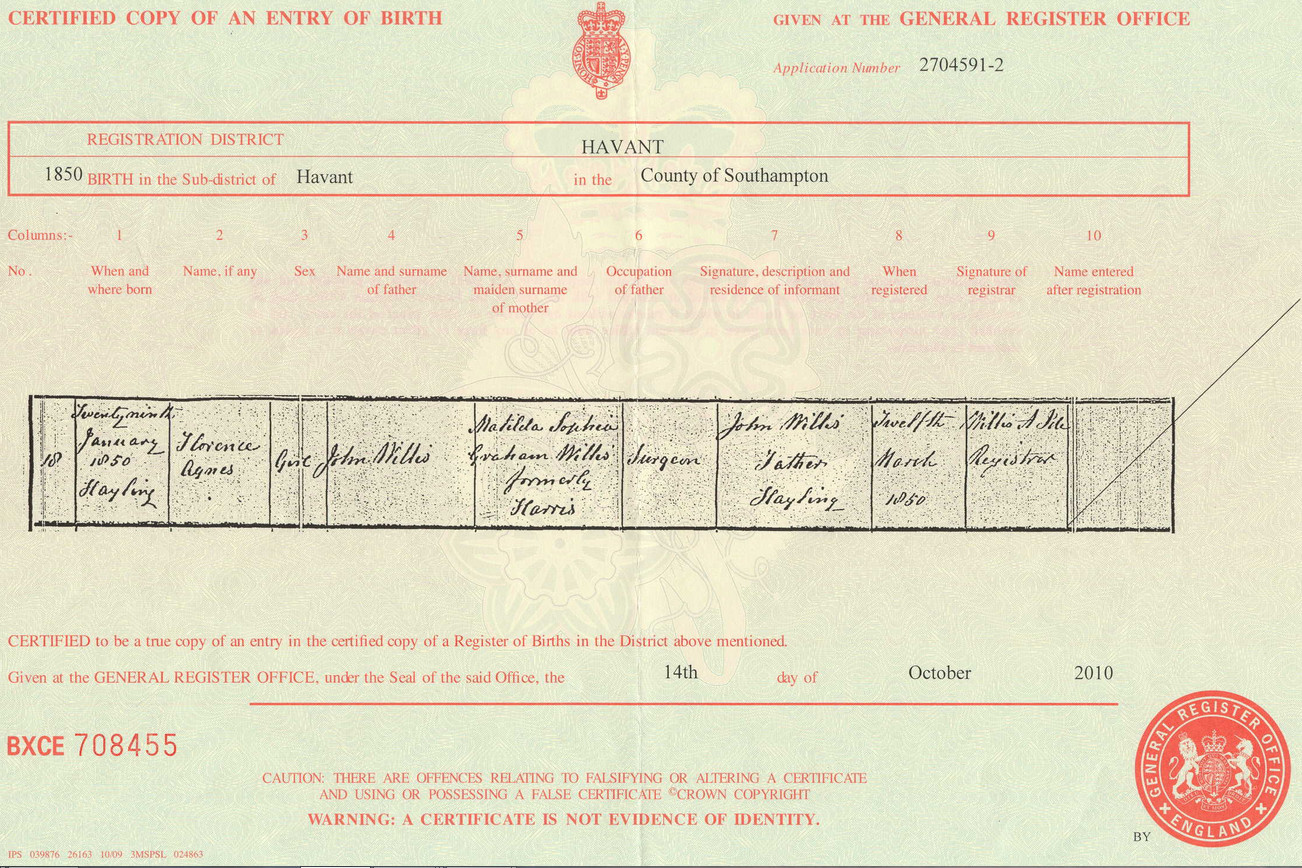 CERTIFIED COPY OF AN ENTRY OF BIRTH
GIVEN AT THE GENERAL REGISTER OFFICE
Application Number 2704591-2
REGISTRATION DISTRICT HAVANT
1850 BIRTH in the Sub-district of Havant in the County of Southampton
Columns:- 1 2 3 4 5 6 7 8 9 10
No. When and where born
Name, if any
Sex
Name and surname of father
Name, surname and maiden surname of mother
Occupation of father
Signature, description and residence of informant
When registered
Signature of registrar
Name entered after registration
18
Twenty ninth
January
1850
Hayling
Florence
Agnes
Girl
John Willis
Matilda Sophia
Graham Willis
formerly
Harris
Surgeon
John Willis
Father
Hayling
Twelfth
March
1850
Willis A
Registrar
CERTIFIED to be a true copy of an entry in the certified copy of a Register of Births in the District above mentioned.
Given at the GENERAL REGISTER OFFICE, under the Seal of the said Office, the 14th day of October 2010
BXCE 708455
CAUTION: THERE ARE OFFENCES RELATING TO FALSIFYING OR ALTERING A CERTIFICATE
AND USING OR POSSESSING A FALSE CERTIFICATE ©CROWN COPYRIGHT
WARNING: A CERTIFICATE IS NOT EVIDENCE OF IDENTITY.
GENERAL REGISTER OFFICE
ENGLAND
BY
IPS 039876 26163 10/09 3MSPSL 024863